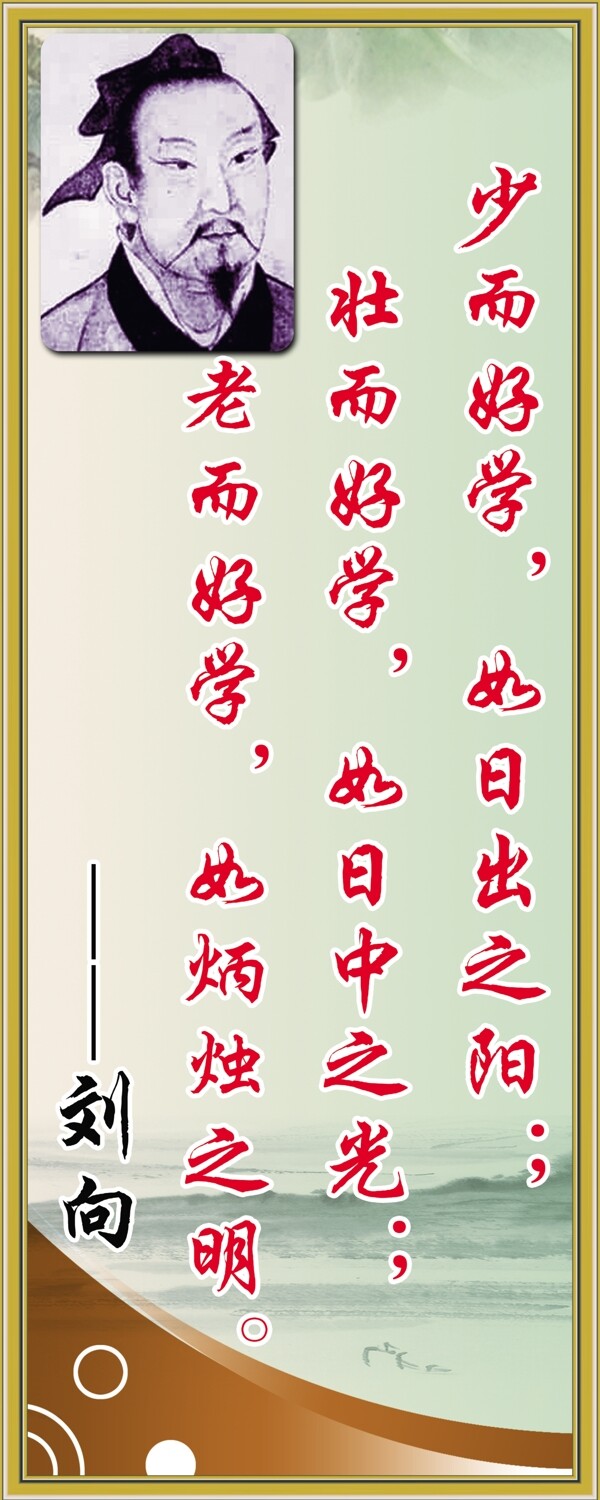 少而好学，如日出之阳；
壮而好学，如日中之光；
老而好学，如炳烛之明。
——刘向